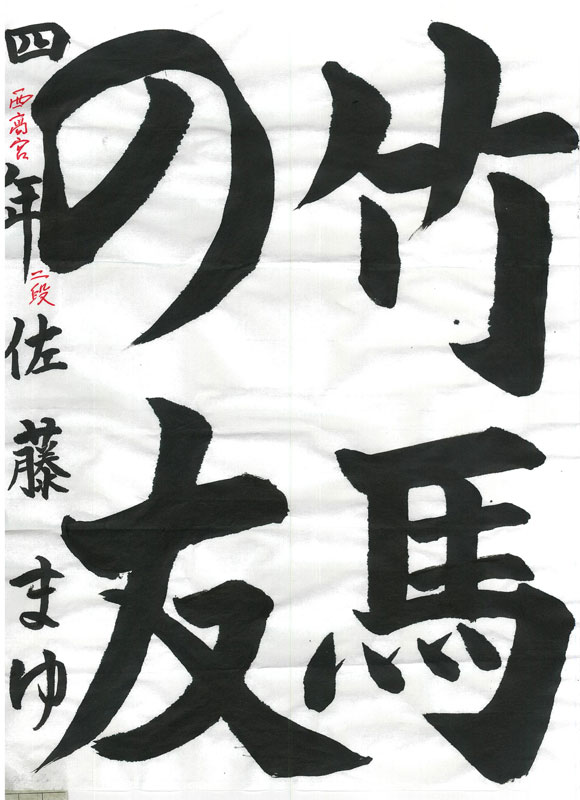 竹馬
の友
四年 佐藤まゆ
西高宮
二段